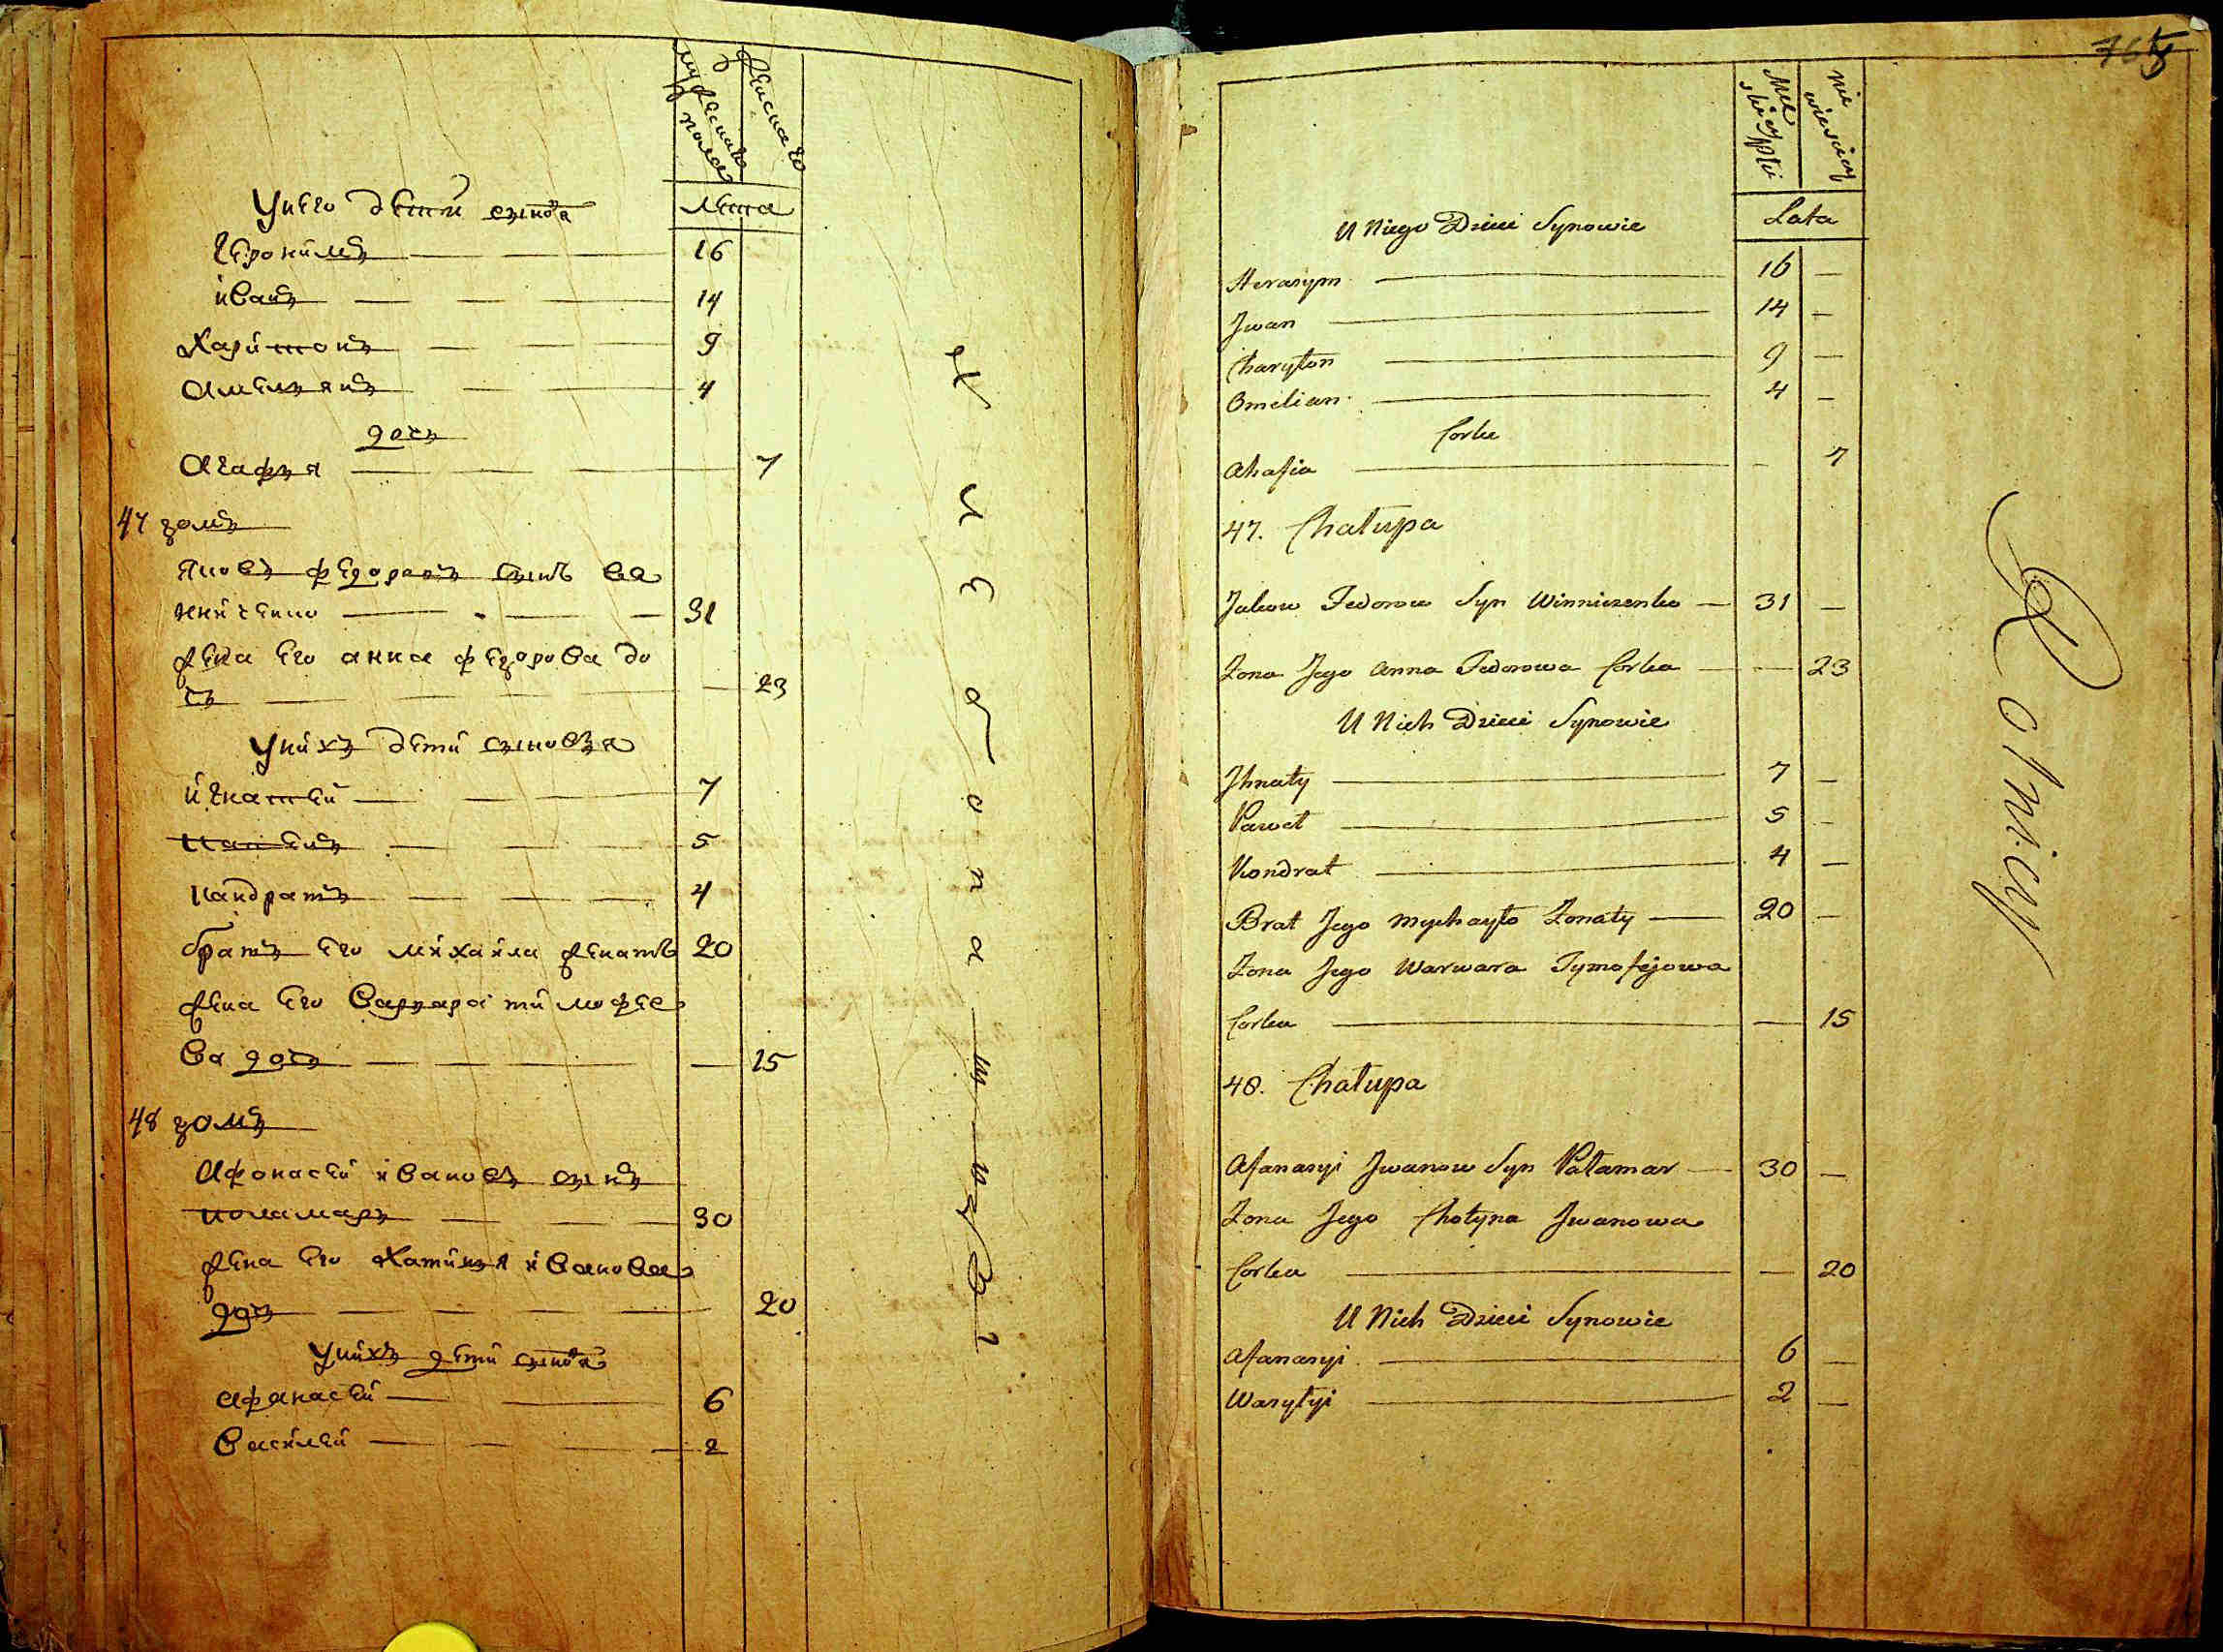 мужеска полу
женска го
Унего дети сыновя
лета
Геронимъ 16
иванъ 14
Харитонъ 9
Амельянъ 4
дочъ
Агафия 7
47 домъ
Яковъ федоровъ сынъ ви
ниченко 31
жена его анна федорова до
чъ 23
Унихъ дети сыновья
игнатей 7
5
Кандратъ 4
братъ его михайла женатъ 20
жена его Варвара тимофее
ва дочъ 15
48 домъ
Афонасей ивановъ сынъ
поламарь 30
жена его Хатинья иванова
дочъ 20
Унихъ дети сыновя
афанасей 6
Василей 2
Хлебопашцы
765
Mezkiey płci
niewiesciey
U Niego Dzieci Synowie
Lata
Herasym 16 —
Jwan 14 —
Charyton 9 —
Omelian 4 —
Corka
Ahafia — 7
47. Chałupa
Jakow Fedorow Syn Winniczenko — 31 —
Zona Jego Anna Fedorowa Corka — 23
U Nich Dzieci Synowie
Jhnaty 7 —
Paweł 5 —
Kondrat 4 —
Brat Jego Mychayło Zonaty — 20 —
Zona Jego Warwara Tymofejowa
Corka — 15
48. Chałupa
Afanasyi Jwanow Syn Pałamar — 30 —
Zona Jego Chotyna Jwanowa
Corka — 20
U Nich Dzieci Synowie
Afanasyi 6 —
Wasylyi 2 —
Rolnicy